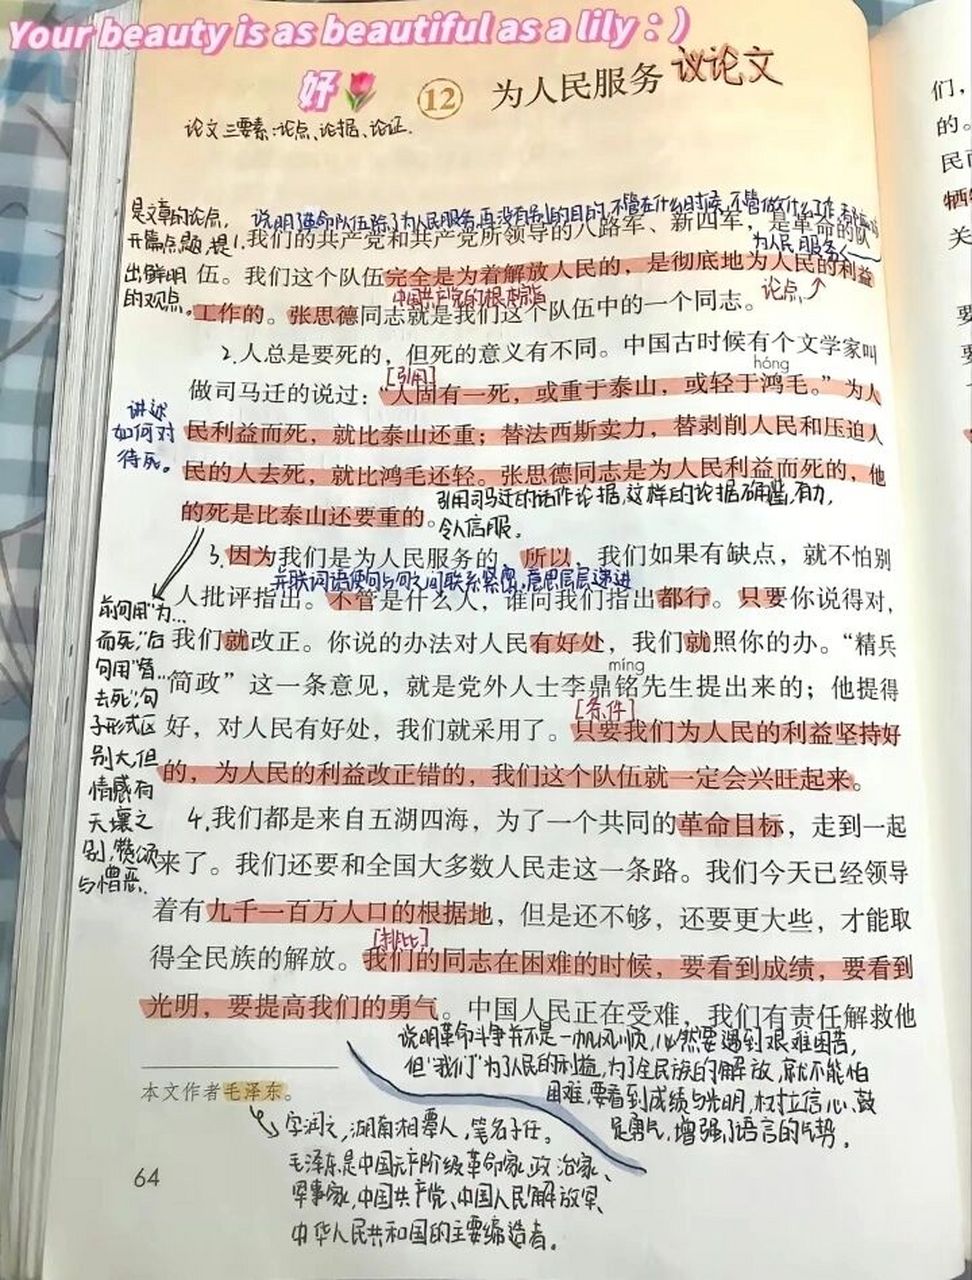 Your beauty is as beautiful as a lily：)
好
12 为人民服务 议论文
论文三要素:论点、论据、论证.
是文章的论点,
开篇点题,提
出鲜明
的观点。
说明了革命队伍除了为人民服务再没有别的目的,不管在什么时候,不管做什么工作,都
为人民服务
1.我们的共产党和共产党所领导的八路军、新四军，是革命的队
伍。我们这个队伍完全是为着解放人民的，是彻底地为人民的利益
中国共产党的根本宗旨
论点
工作的。张思德同志就是我们这个队伍中的一个同志。
2.人总是要死的，但死的意义有不同。中国古时候有个文学家叫
[引用]
hóng
做司马迁的说过：“人固有一死，或重于泰山，或轻于鸿毛。”为人
讲述
如何对
待死。
民利益而死，就比泰山还重；替法西斯卖力，替剥削人民和压迫人
民的人去死，就比鸿毛还轻。张思德同志是为人民利益而死的，他
的死是比泰山还要重的。
引用司马迁的话作论据,这样的论据确凿,有力,
令人信服。
3.因为我们是为人民服务的，所以，我们如果有缺点，就不怕别
关联词语使句与句之间联系紧密,意思层层递进
人批评指出。不管是什么人，谁向我们指出都行。只要你说得对，
我们就改正。你说的办法对人民有好处，我们就照你的办。“精兵
míng
简政”这一条意见，就是党外人士李鼎铭先生提出来的；他提得
[条件]
好，对人民有好处，我们就采用了。只要我们为人民的利益坚持好
的，为人民的利益改正错的，我们这个队伍就一定会兴旺起来。
前句用“为...
而死”,后
句用“替...
去死”,句
子形式区
别大,但
情感有
天壤之
别,赞颂
与憎恶.
4.我们都是来自五湖四海，为了一个共同的革命目标，走到一起
来了。我们还要和全国大多数人民走这一条路。我们今天已经领导
着有九千一百万人口的根据地，但是还不够，还要更大些，才能取
[排比]
得全民族的解放。我们的同志在困难的时候，要看到成绩，要看到
光明，要提高我们的勇气。中国人民正在受难，我们有责任解救他
说明革命斗争并不是一帆风顺,必然要遇到艰难困苦,
但“我们”为了人民的利益,为了全民族的解放,就不能怕
困难,要看到成绩与光明,树立信心、鼓
足勇气,增强了语言的气势.
本文作者毛泽东。
字润之,湖南湘潭人,笔名子任。
毛泽东是中国无产阶级革命家、政治家、
军事家,中国共产党、中国人民解放军、
中华人民共和国的主要缔造者。
64
们，
的。
民
牺
关
要
要